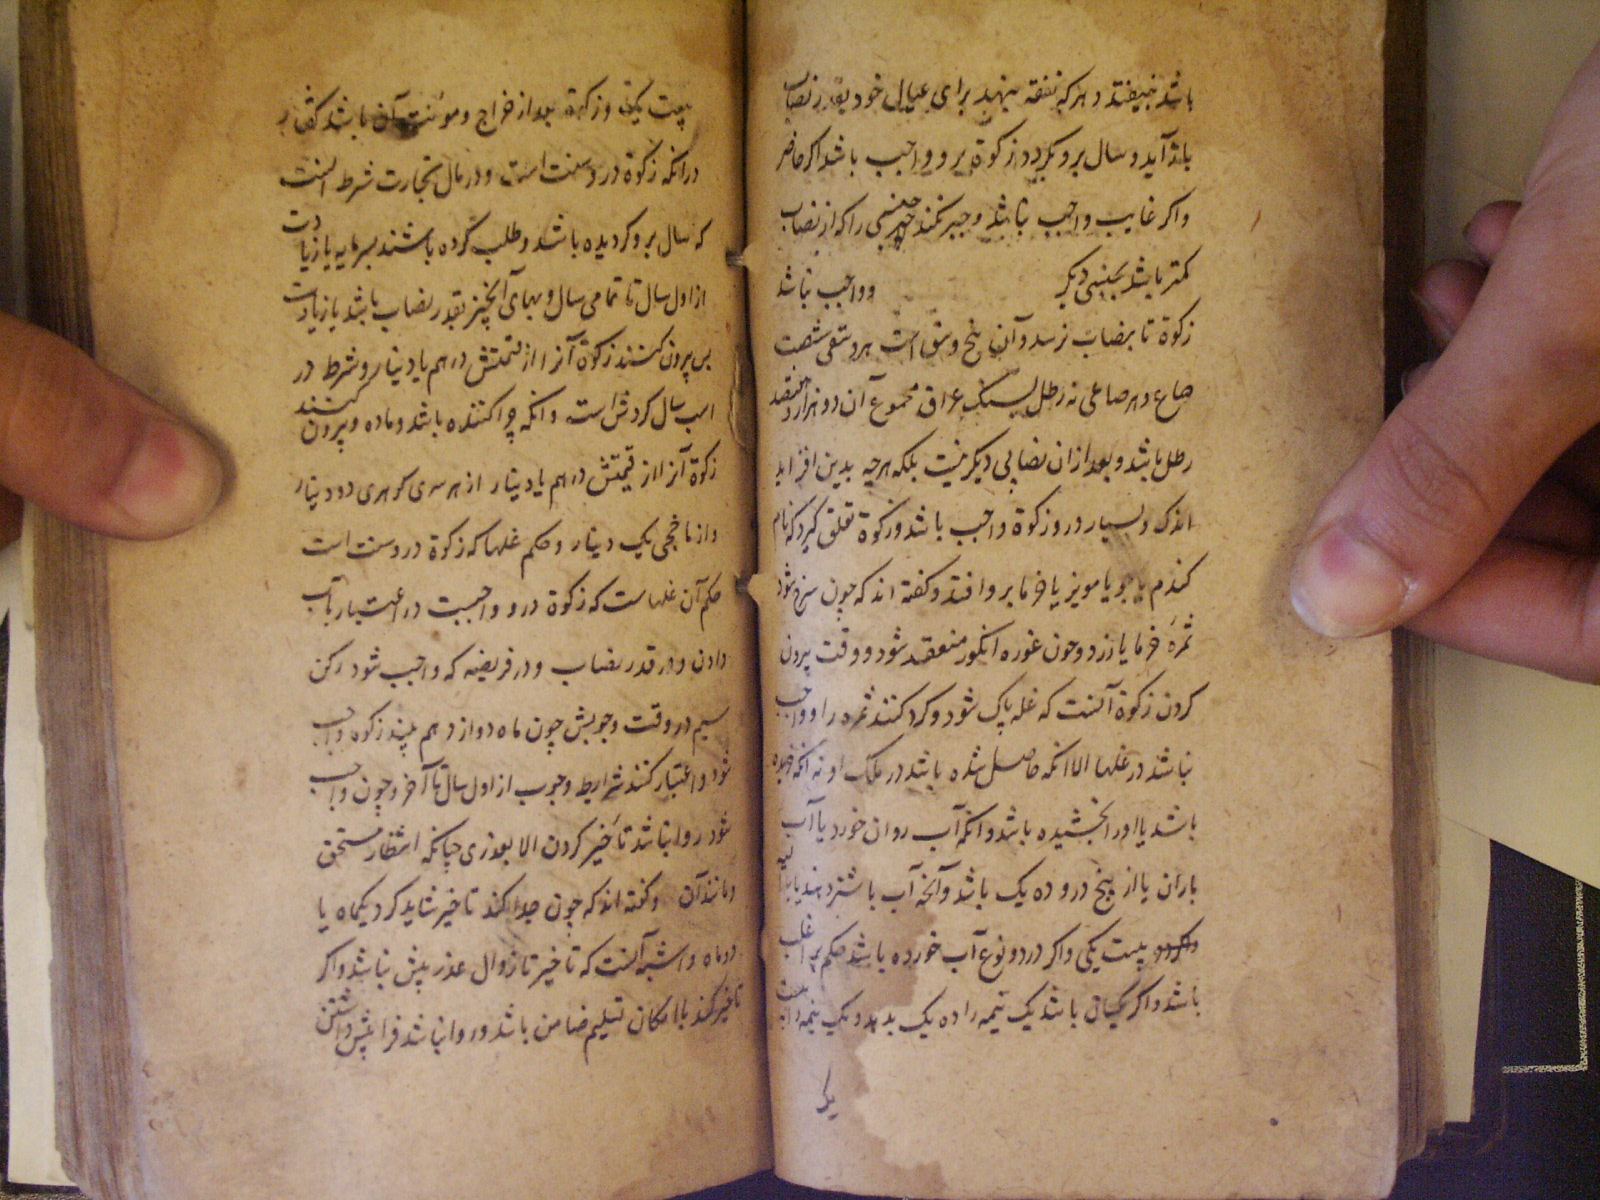 باشد نیفتد و هر که نفقه بنهد برای عیال خود بقدر نصاب
باز آید و سال برو بگردد زکوة برو واجب باشد اکر حاضر
واکر غایب واجب نباشد و جبر نکنند جنسی را که از نصاب
کمتر باشد بجنسی دیکر و واجب نباشد
زکوة تا بنصاب نرسد و آن پنج وسق است هر وسقی شصت
صاع و هر صاعی نه رطل بسنک عراق مجموع آن دو هزار و هفتصد
رطل باشد و بعد ازان نصابی دیکر نیست بلکه هرچه بدین افزاید
اندک و بسیار درو زکوة واجب باشد و زکوة تعلق کیرد که نام
کندم یا جو یا مویز یا خرما برو افتد و کفته اند که چون سرخ شود
ثمرهٔ خرما یا زرد و چون غوره انکور منعقد شود و وقت بیرون
کردن زکوة آنست که غله پاک شود و کرد کنند ثمره را و واجب
نباشد در غلها الا انکه حاصل شده باشد در ملک او نه انکه خریده
باشد یا اورا بخشیده باشد و انکه آب روان خورد یا آب
باران یا از بیخ درو ده یک باشد و آنچه آب باشتر دهند یا
بیست یکی واکر در دو نوع آب خورده باشد حکم بر اغلب
باشد و اکر یکسان باشد یک نیمه را ده یک بدهد و یک نیمه را بیست
یک
بیست یک و زکوة بعد از خراج و مؤنت آن باشد
درانکه زکوة درو سنت است و در مال تجارت شرط آنست
که سال برو کردیده باشد و طلب کرده باشند بسرمایه یا زیادت
از اول سال تا تمامی سال و بهای آن چیز بقدر نصاب باشد یا زیادت
پس بیرون کنند زکوة آنرا از قیمتش درهم یا دینار و شرط در
اسب سال کردش است و انکه چرا کننده باشد و ماده و بیرون کنند
زکوة آنرا از قیمتش درهم یا دینار از هر سری کوهری دو دینار
و از تا یک دینار و حکم غلها که زکوة درو سنت است
حکم آن غلهاست که زکوة درو واجبست در اعتبار آب
دادن و در قدر نصاب و در فریضه که واجب شود رکن
سیم در وقت وجوبش چون ماه دوازدهم بیند زکوة واجب
شود و اعتبار کنند شرایط وجوب از اول سال تا آخر و چون واجب
شود روا نباشد تأخیر کردن الا بعذری چنانکه انتظار مستحق
و مانند آن و کفته اند که چون جدا کند تاخیر شاید کرد یکماه یا
دو ماه و اشبه آنست که تاخیر تا زوال عذر بیش نباشد واکر
تاخیر کند با امکان تسلیم ضامن باشد و روا نباشد فرا پیش داشتن